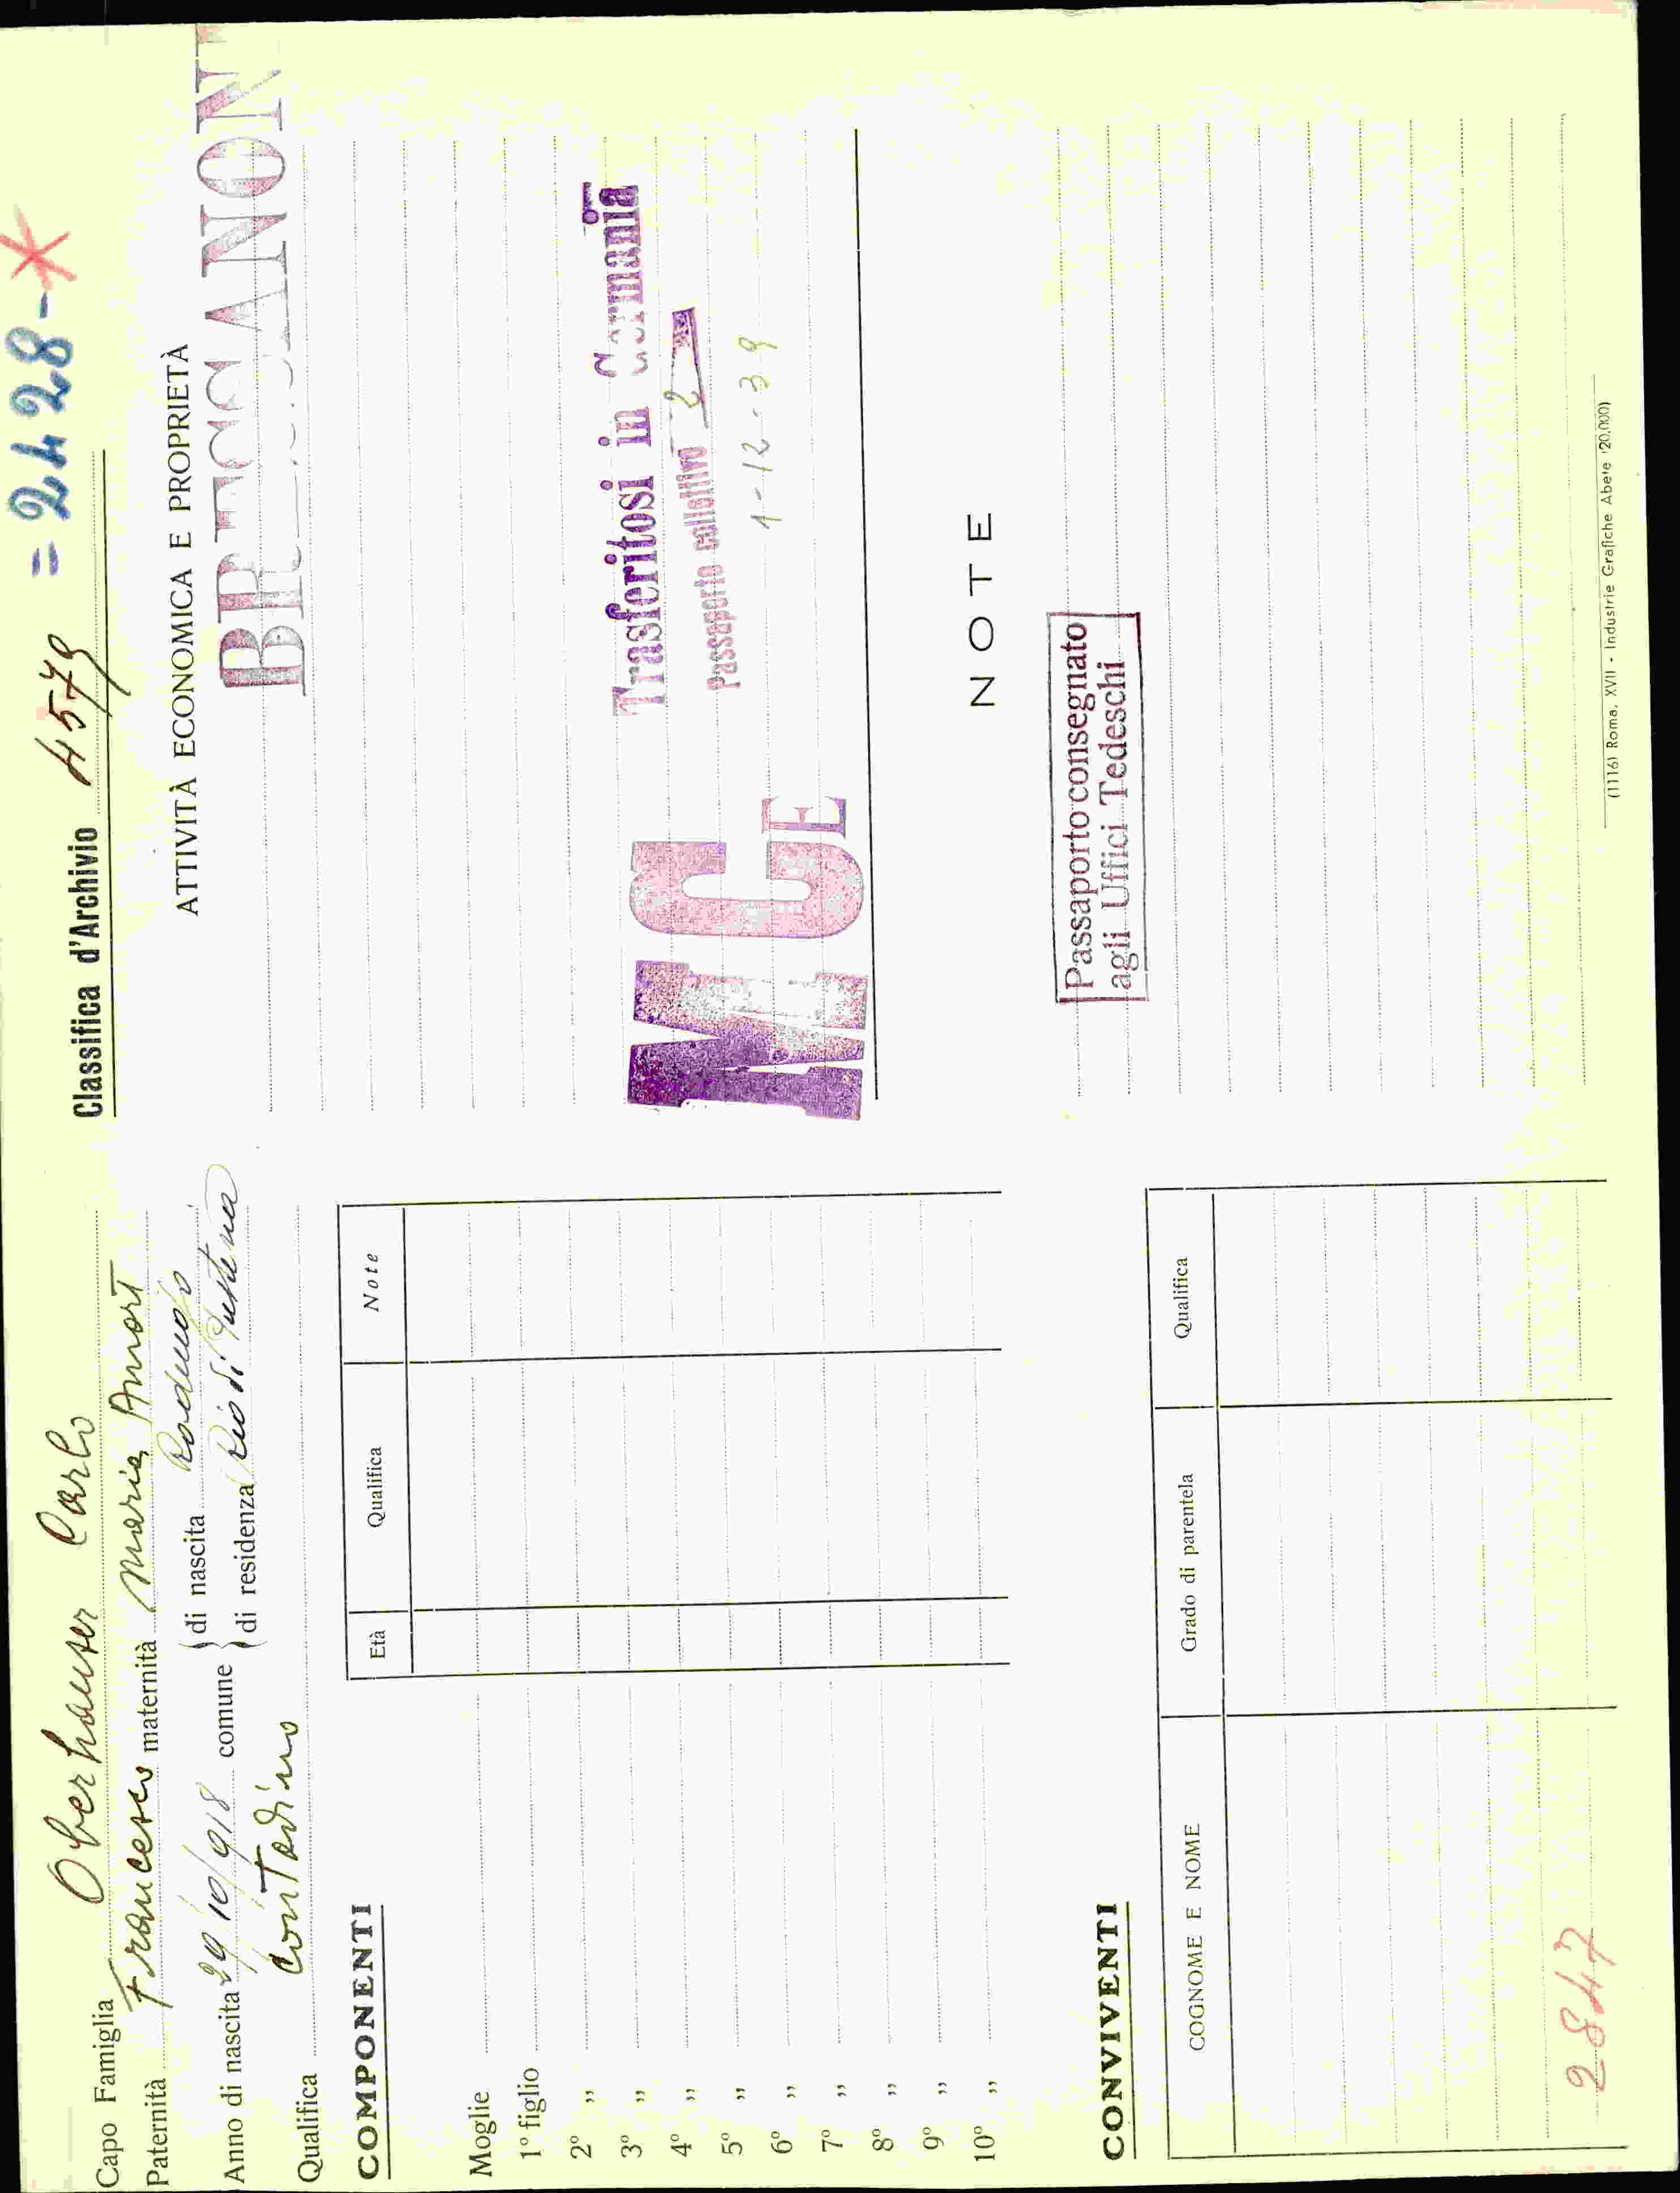 = 2428 - *
Capo Famiglia Oberhauser Carlo
Paternità Francesco maternità Maria Amort
Anno di nascita 29/10/918 comune
di nascita Rodengo
di residenza Rio di Pusteria
Qualifica Contadino
COMPONENTI
Età Qualifica Note
Moglie
1º figlio
2º ,,
3º ,,
4º ,,
5º ,,
6º ,,
7º ,,
8º ,,
9º ,,
10º ,,
CONVIVENTI
COGNOME E NOME Grado di parentela Qualifica
2847
Classifica d'Archivio 4579
ATTIVITÀ ECONOMICA E PROPRIETÀ
BRESSANON
Trasferitosi in Germania
Passaporto collettivo 2
1-12-39
M G E
NOTE
Passaporto consegnato
agli Uffici Tedeschi
(1116) Roma, XVII - Industrie Grafiche Abete (20.000)